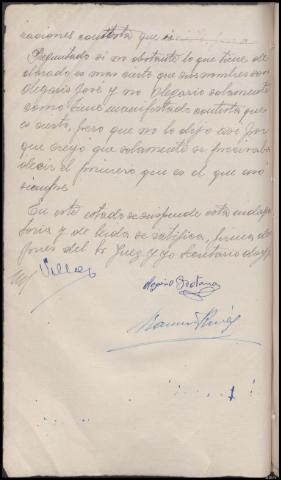 raciones contesta que si
Preguntado si no obstante lo que tiene de
clarado es mas cierto que sus nombres son
Olegario José y no Olegario solamente
como tiene manifestado contesta que
es cierto, pero que no lo dijo asi por
que creyo que solamente se precisaba
decir el primero que es el que usó
siempre
En este estado se suspende esta indaga
toria y de leida se ratifica, firma des
pues del Sr Juez y yo Secretario doy fe
Villar
Ramon